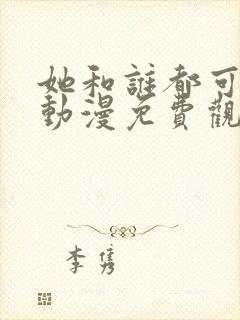 她和誰都可
動漫免費觀
李隽